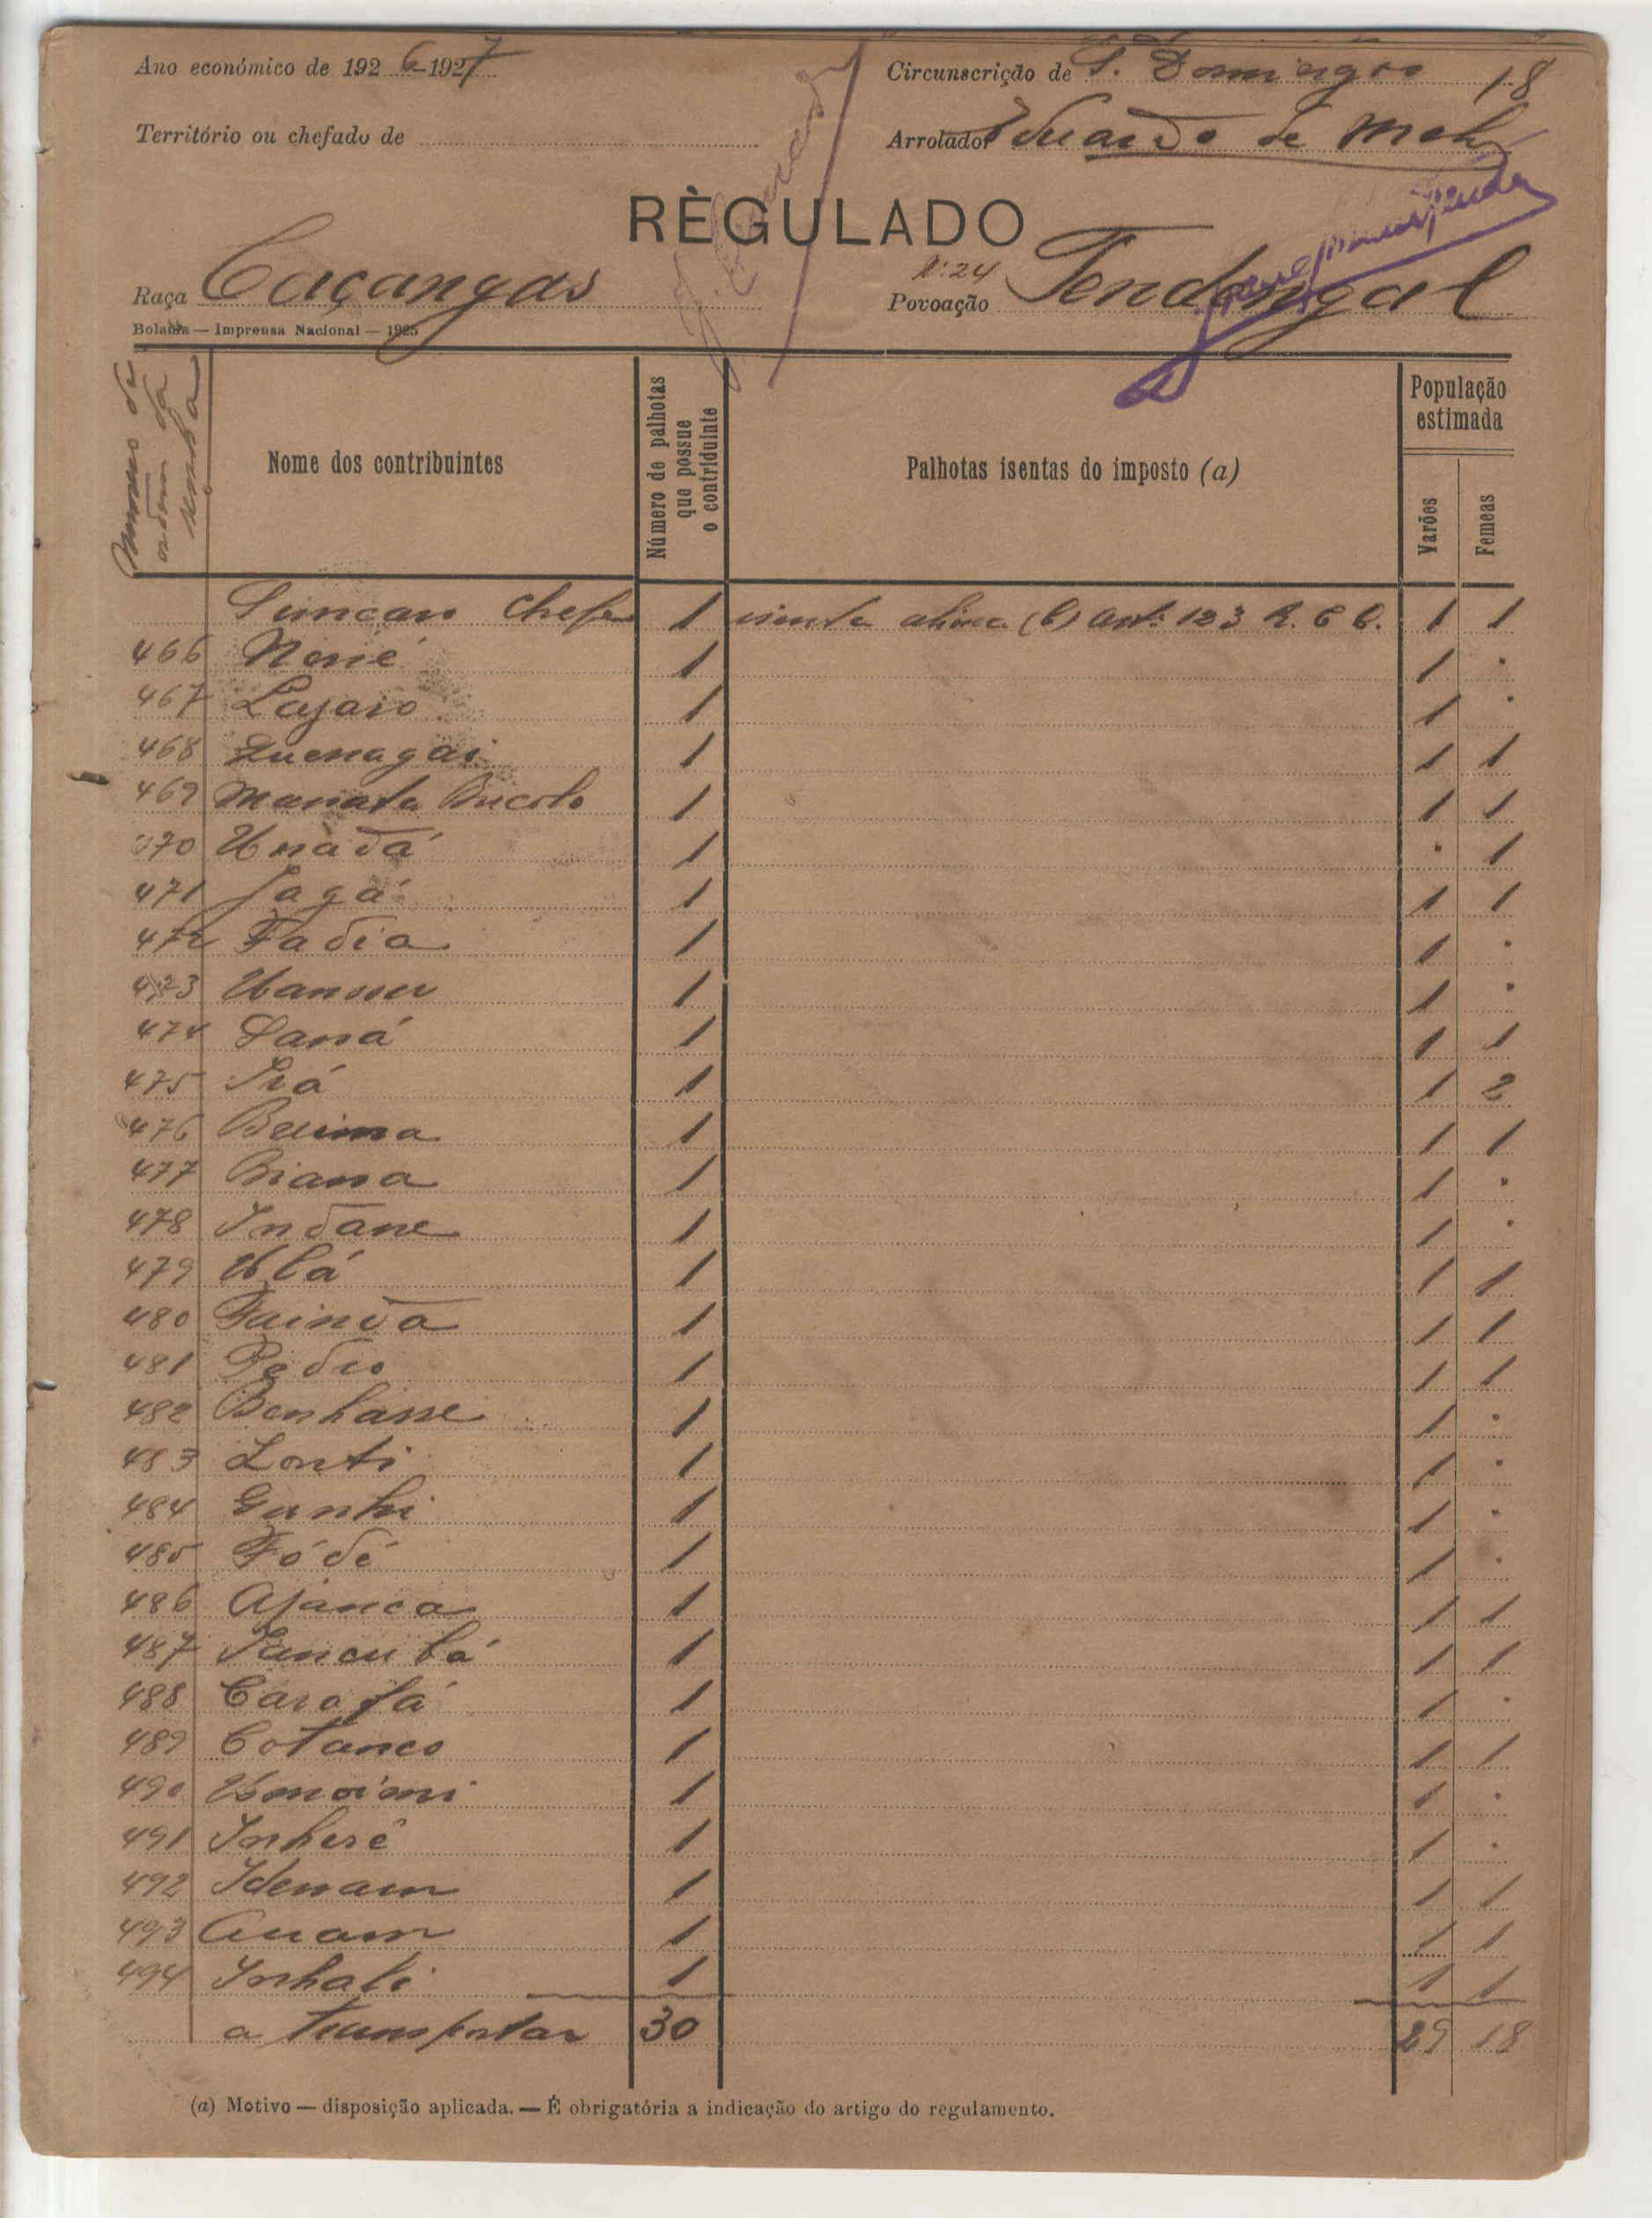 Ano económico de 1926-1927
Circunscrição de S. Domingos 18
Território ou chefado de
Arrolador Eduardo de Melo
RÈGULADO
Raça Caçangas
Nº 24
Povoação Tendongal
Bolama — Imprensa Nacional — 1925
Numero de ordem da senha
Nome dos contribuintes
Número de palhotas que possue o contriduinte
Palhotas isentas do imposto (a)
População estimada
Varões
Femeas
Simcaro Chefe 1 isenta alinea (b) art. 123 R. C. C. 1 1
466 Nené 1 1 .
467 Lajaro 1 1 .
468 Quenagai 1 1 1
469 Manata Bucolo 1 1 1
470 Unadá 1 . 1
471 Jagá 1 1 1
472 Fadia 1 1 .
473 Uansau 1 1 .
474 Saná 1 1 1
475 Irá 1 1 2
476 Beuima 1 1 1
477 Biana 1 1 .
478 Indane 1 1 .
479 Ublá 1 1 1
480 Fainda 1 1 1
481 Pedro 1 1 1
482 Benhane 1 1 .
483 Lonti 1 1 .
484 Gunhi 1 1 .
485 Fódé 1 1 .
486 Ajanca 1 1 1
487 Sancubá 1 1 1
488 Carafá 1 1 .
489 Cotanco 1 1 1
490 Umoimi 1 1 .
491 Inherê 1 1 .
492 Idenam 1 1 1
493 Auam 1 1 1
494 Inhali 1 1 1
a transportar 30 29 18
(a) Motivo — disposição aplicada. — É obrigatória a indicação do artigo do regulamento.